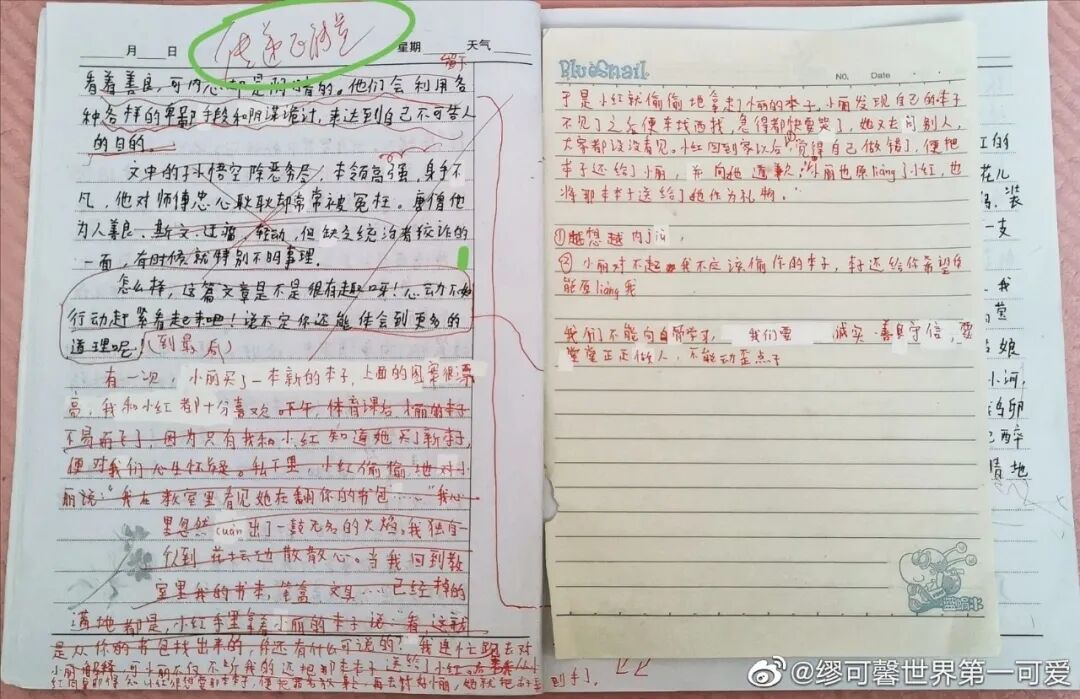 月 日
传递正能量
星期
天气
看着善良，可内心却是阴暗的。他们会利用各
种各样的卑鄙手段和阴谋诡计，来达到自己不可告人
的目的。
文中的孙悟空除恶务尽，本领高强，身手不
凡，他对师傅忠心耿耿却常常被冤枉。唐僧他
为人善良、斯文、过
轻动，但缺乏统治者狡诈的
一面，有时候就特别不明事理。
怎么样，这篇文章是不是很有趣呀！心动不如
行动赶紧看起来吧！说不定你还能体会到更多的
道理呢！（到最后）
有一次，小丽买了一本新的本子，上面的图案很漂
亮，我和小红都十分喜欢。下午，体育课后小丽的本子
不翼而飞了，因为只有我和小红知道她买了新本子，
便对我们心生怀疑。私下里，小红偷偷地对小
丽说："我在教室里看见她在翻你的书包……"我心
里忽然cuàn出了一鼓无名的火焰。我独自一
人到花坛边散散心。当我回到教
室里我的书本，笔盒，文具……已经掉的
满地都是，小红手里拿着小丽的本子说："看，这就
是从你的书包找出来的，你还有什么可说的？"我连忙跑去对
小丽解释，可小丽不但不听我的还把那本本子送给了小红。
BlueSnail
NO.
Date
于是小红就偷偷地拿走了小丽的本子，小丽发现自己的本子
不见了之后便东找西找，急得都快要哭了，她又去问别人，
大家都说没看见。小红回到家以后，觉得自己做错了，便把
本子还给了小丽，并向她道歉，小丽也原liàng了小红，也
将那本本子送给了她作为礼物。
①越想越内jiù，
②小丽对不起，我不应该偷你的本子，本子还给你希望你
能原liàng我
我们不能向白骨精学习，我们要 诚实 善良守信，要
堂堂正正做人，不能动歪点子
蓝蜗牛
红的
花儿
装
一支
我
娘
小河，
醉
晴 地
@缪可馨世界第一可爱